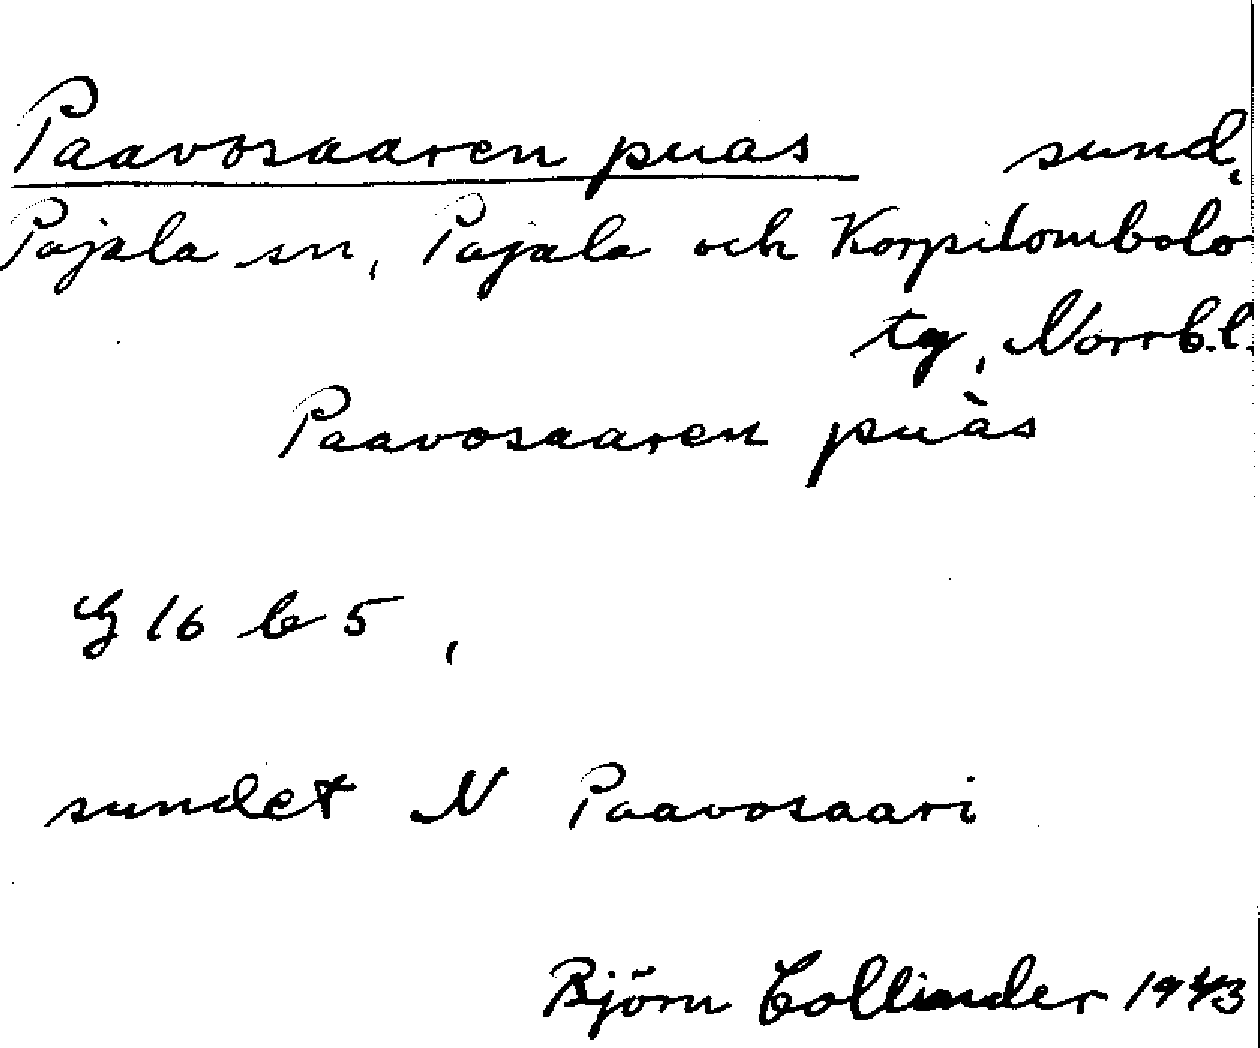 Paavosaaren puas sund,
Pajala sn, Pajala och Korpilombolo
tg, Norrb.l.
Paavosaaren puàs
G 16 b 5,
sundet N Paavosaari
Björn Collinder 1943